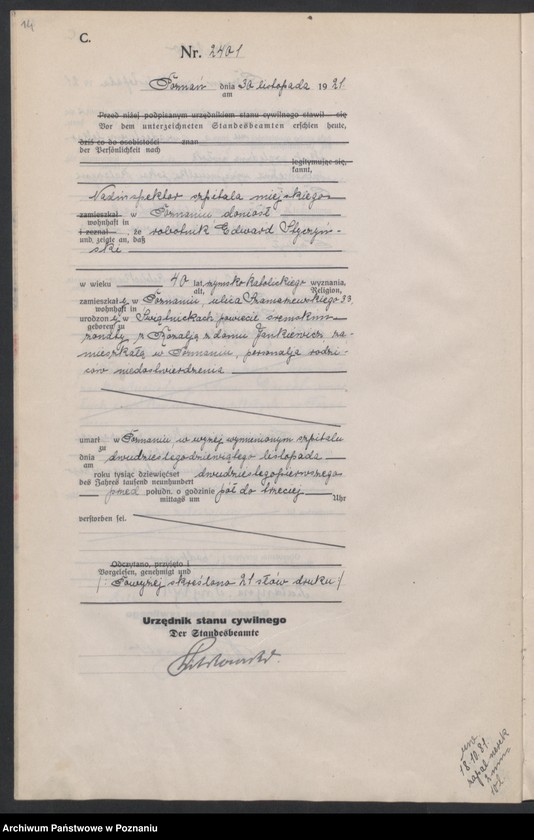 14
C.
Nr. 2401
Poznań dnia 30 listopada 1921
am
Przed niżej podpisanym urzędnikiem stanu cywilnego stawił się
Vor dem unterzeichneten Standesbeamten erschien heute,
dziś co do osobistości znan
der Persönlichkeit nach
legitymując się,
kannt,
Nadinspektor szpitala miejskiego
zamieszkał w Poznaniu doniósł
wohnhaft in
i zeznał, że robotnik Edward Styczyń-
und zeigte an, daß
ski
w wieku 40 lat, rzymsko katolickiego wyznania,
alt, Religion,
zamieszkały w Poznaniu, ulica Szamarzewskiego 33
wohnhaft in
urodzony w Świątnickach powiecie śremskim
geboren zu
żonaty, z Rozalją z domu Jankiewicz, za-
mieszkałą w Poznaniu, personalja rodzi-
ców niedostwierdzenia
umarł w Poznaniu w wyżej wymienionym szpitalu
zu
dnia dwudziestegodziewiątego listopada
am
roku tysiąc dziewięćset dwudziestegopierwszego
des Jahres tausend neunhundert
przed połudn. o godzinie pół do trzeciej
mittags um Uhr
verstorben sei.
Odczytano, przyjęto i
Vorgelesen, genehmigt und
/: Powyżej skreślono 21 słów druku /
Urzędnik stanu cywilnego
Der Standesbeamte
18.10.81.
Archiwum Państwowe w Poznaniu